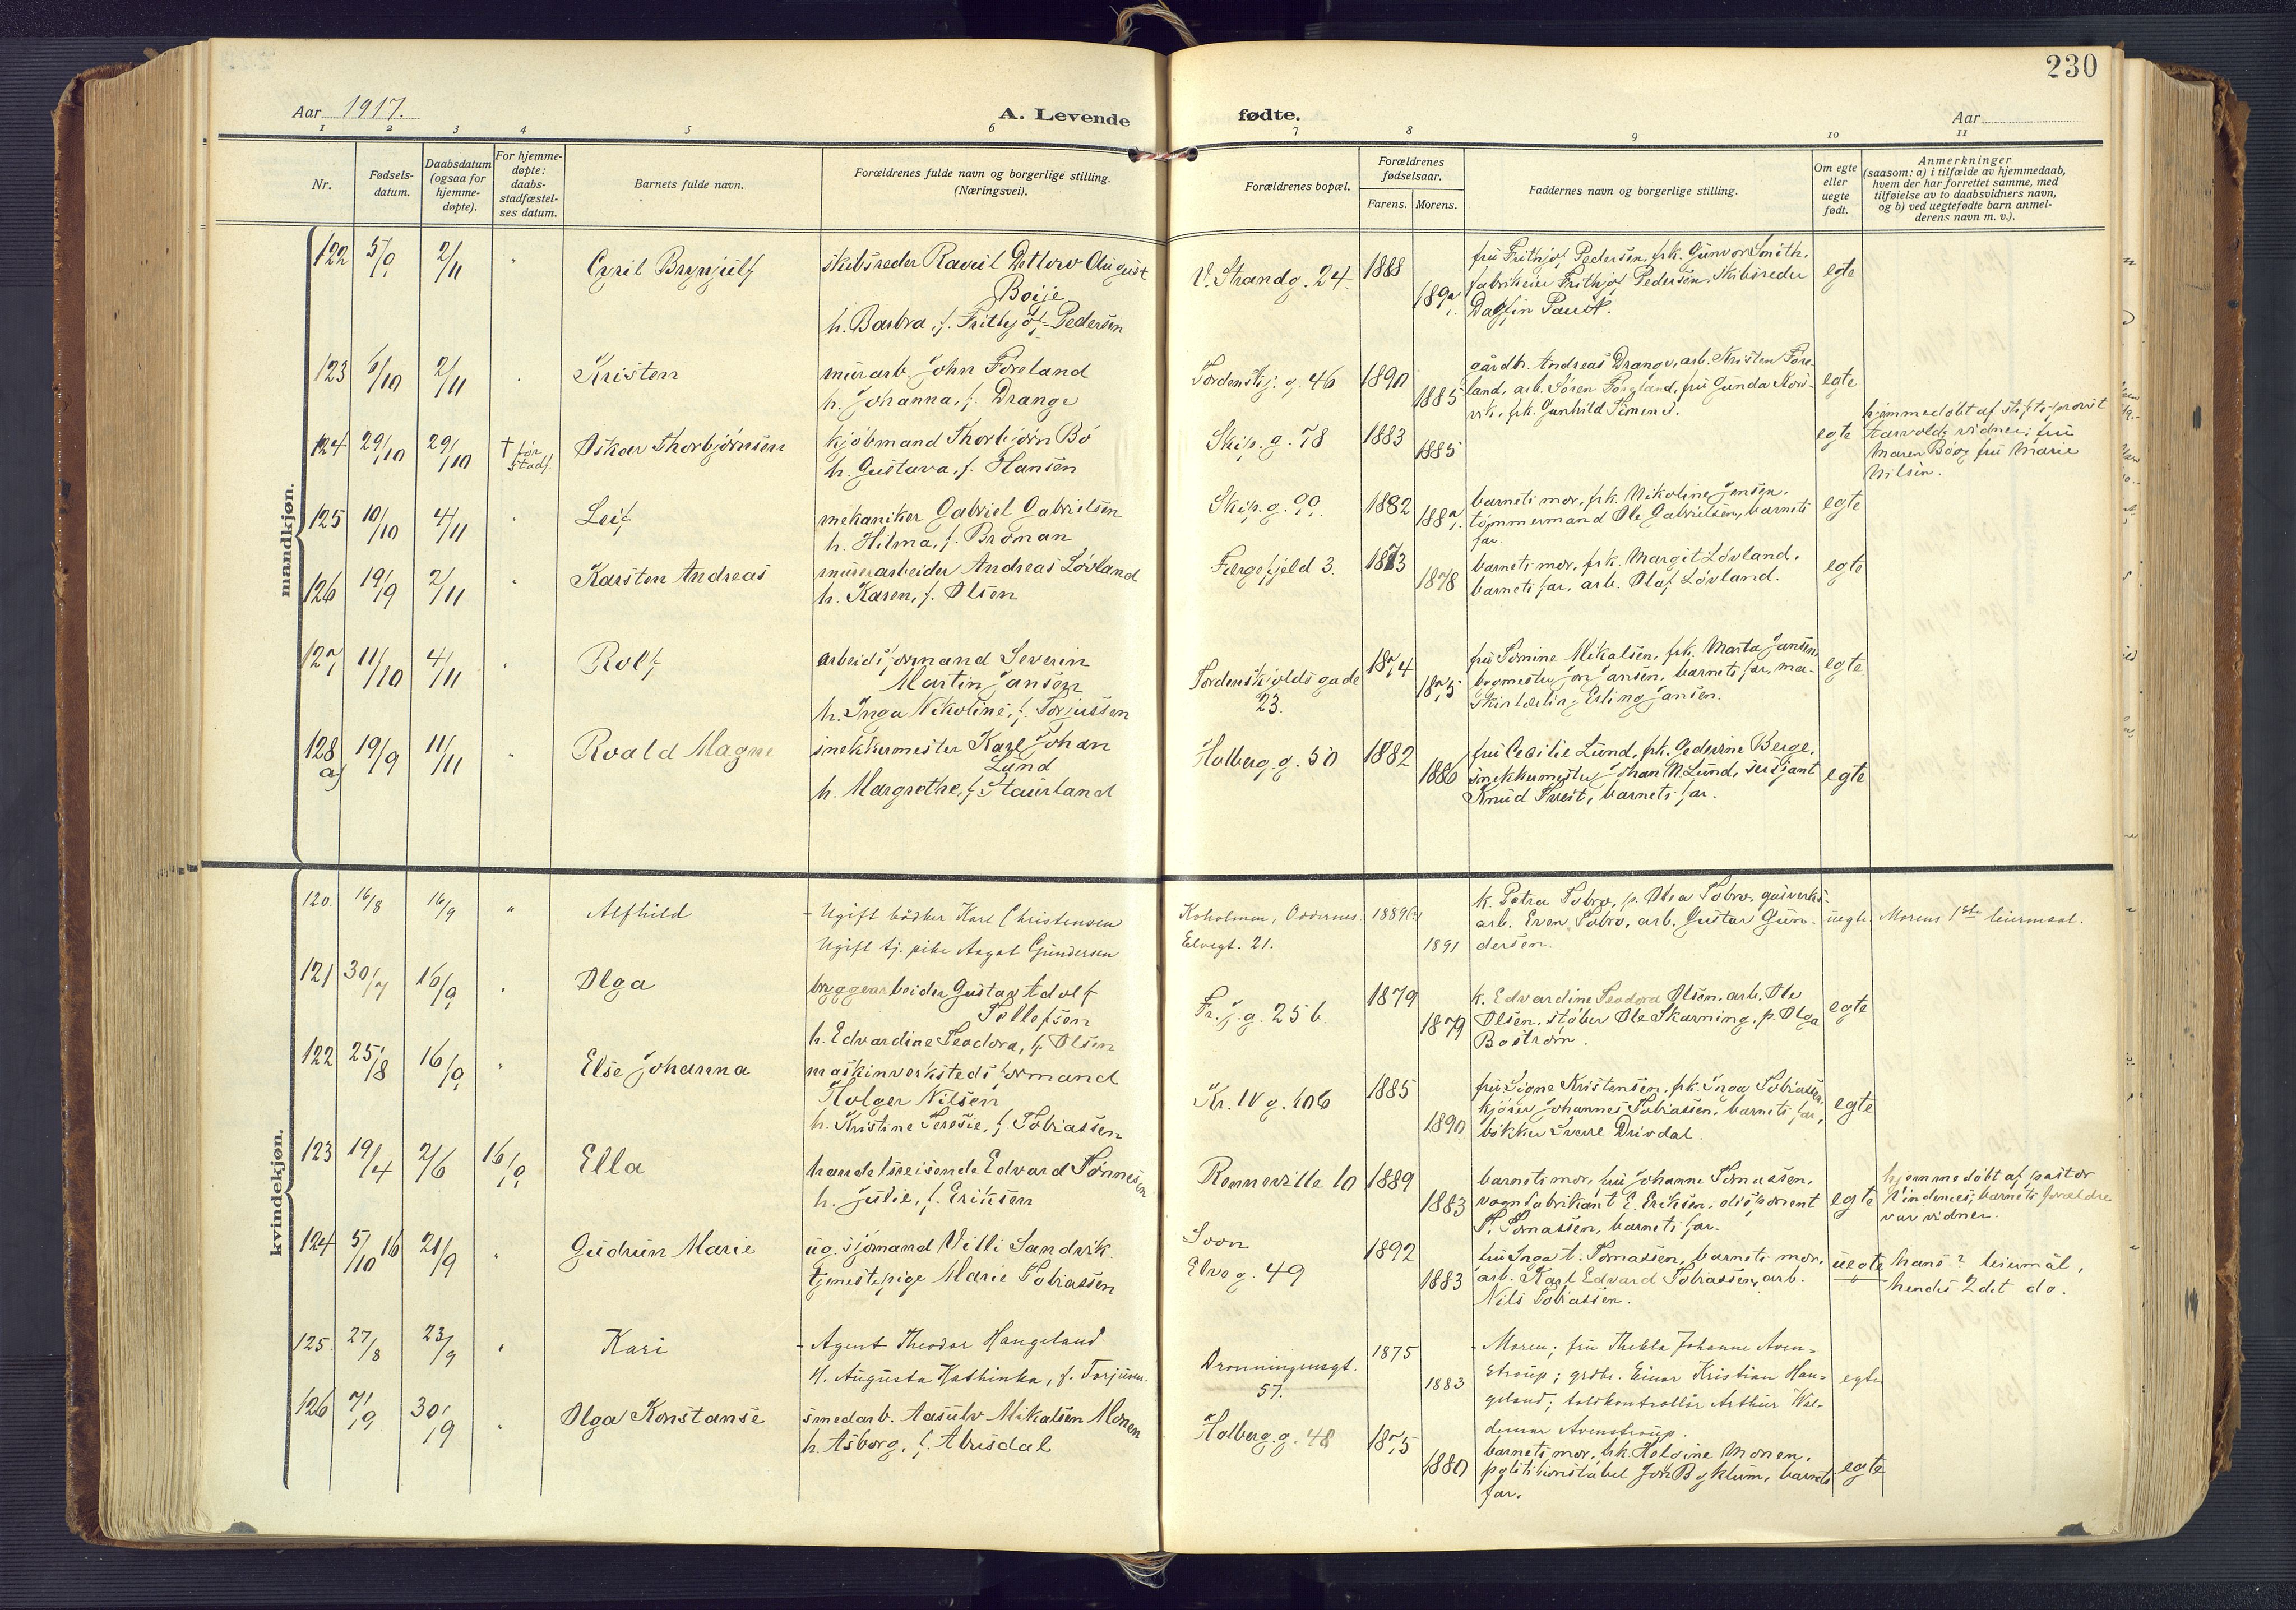 230
Aar 1917.
A. Levende
fødte.
Aar
1 2 3 4 5 6 7 8 9 10 11
Nr.
Fødsels-
datum.
Daabsdatum
(ogsaa for
hjemme-
døpte).
For hjemme-
døpte:
daabs-
stadfæstel-
ses datum.
Barnets fulde navn.
Forældrenes fulde navn og borgerlige stilling.
(Næringsvei).
Forældrenes bopæl.
Forældrenes
fødselsaar.
Farens. Morens.
Faddernes navn og borgerlige stilling.
Om egte
eller
uegte
født.
Anmerkninger
(saasom: a) i tilfælde av hjemmedaab,
hvem der har forrettet samme, med
tilføielse av to daabsvidners navn,
og b) ved uegtefødte barn anmel-
derens navn m. v.).
mandkjøn.
122 5/9 2/11 " Cyril Brynjulf
skibsreder Ravul Detlow August
Boije
h. Barbra, f. Frithjof-Pedersen
V. Strandg. 24. 1888 1897
fru Frithjof Pedersen, frk. Gunvor Smith,
fabrikeier Frithjof Pedersen, Skibsreder
Dagfin Paust.
egte
123 6/10 2/11 " Kristen
murarb. John Føreland
h. Johanna, f. Drange
Tordenskj. g. 46 1890 1885
gårdb. Andreas Drange, arb. Kristen Føre-
land, arb. Søren Føreland, fru Gunda Nord-
vik, frk. Gunhild Simens.
egte
124 29/10 29/10 † før
stadf.
Oskar Thorbjørnsen
kjøbmand Thorbjørn Bø
h. Gustava, f. Hansen
Skip. g. 78 1883 1885
egte
hjemmedøbt af stiftsprovst
Aarvold, vidner: fru
Maren Bø og fru Marie
Nilsen.
125 10/10 4/11 " Leif
mekaniker Gabriel Gabrielsen
h. Hilma, f. Broman
Skip. g. 99. 1882 1887
barnets mor, frk. Nikoline Jensen,
tømmermand Ole Gabrielsen, barnets
far.
egte
126 19/9 2/11 " Karsten Andreas
murerarbeider Andreas Løvland
h. Karen, f. Olsen
Færgefjeld 3. 1873 1878
barnets mor, frk. Margit Løvland,
barnets far, arb. Olaf Løvland.
egte
127 11/10 4/11 " Rolf
arbeidsformand Severin
Martin Jansen
h. Inga Nikoline, f. Torjussen
Tordenskjolds gade
23.
1874 1875
fru Tomine Mikalsen, frk. Marta Jansen,
bromester Jon Jansen, barnets far, ma-
skinlærling Erling Jansen.
egte
128
a) 19/9 11/11 " Roald Magne
snekkermester Karl Johan
Lund
h. Margrethe, f. Staurland
Holberg. g. 50 1882 1886
fru Cecilie Lund, frk. Gederine Berge,
snekkermester Johan M. Lund, sersjant
Knud Tveit, barnets far.
egte
kvindekjøn.
120. 16/8 16/9 " Alfhild
- Ugift bødker Karl Christensen
Ugift tj. pike Aagot Gundersen
Koholmen, Oddernes.
Elvegt. 21.
1889 1891
k. Petra Tobro, p. Olea Tobro, gasverks-
arb. Even Tobro, arb. Gustav Gun-
dersen.
uegte. Morens 1ste leiermaal.
121 30/7 16/9 " Olga
bryggearbeider Gustav Adolf
Tollefsen
h. Edvardine Teodora, f. Olsen
Fr. j. g. 25 b. 1879 1879
k. Edvardine Teodora Olsen, arb. Ole
Olsen, støber Ole Skarning, p. Olga
Bostrøm.
egte
122 25/8 16/9 " Else Johanna
maskinverkstedsformand
Holger Nilsen
h. Kristine Teresie, f. Tobiassen
Kr. IV g. 106 1885 1890
fru Signe Kristensen, frk. Inga Tobiassen,
kjører Johannes Tobiassen, barnets far,
bøkker Sverre Drivdal.
egte
123 19/4 2/6 16/9 Ella
handelsreisende Edvard Tønnesen
h. Julie, f. Eriksen
Renneville 10 1889 1883
barnets mor, fru Johanne Tomassen,
vognfabrikant E. Eriksen, disponent
T. Tomassen, barnets far.
egte
hjemmedøbt af pastor
Vindenes; barnets forældre
var vidner.
124 5/10 16 21/9 " Gudrun Marie
ug. sjømand Villi Sandvik.
tjenestepige Marie Tobiassen
Soon
Elve g. 49
1892 1883
fru Inga t. Tomassen, barnets mor,
arb. Karl Edvard Tobiassen, arb.
Nils Tobiassen.
uegte hans ? leiermål,
hendes 2det do.
125. 27/8 23/9 " Kari
- Agent Theodor Haugeland
H. Augusta Kathinka, f. Torjusen.
Dronningensgt.
57.
1875 1883
- Moren; fru Thekla Johanne Aven-
strup; grdbr. Einar Kristian Hau-
geland; toldkontrollør Arthur Wal-
demar Avenstroup.
egte
126 7/9 30/9 " Olga Konstanse
smedarb. Aasulv Mikalsen Monen
h. Asborg, f. Abusdal
Holberg. g. 48 1875 1880
barnets mor, frk. Helvine Monen,
politikonstabel Jon Bygklum, barnets
far.
egte